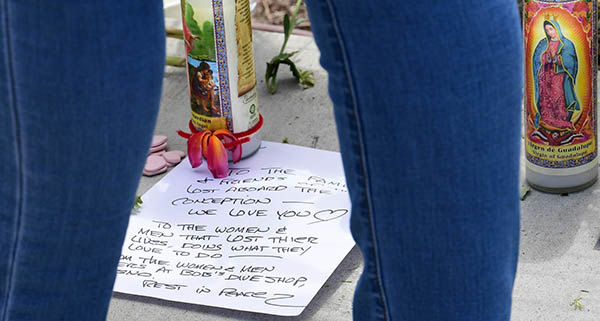 TO THE
& FRIENDS FAMI
LOST ABOARD THE
CONCEPTION —
WE LOVE YOU ♡
TO THE WOMEN &
MEN THAT LOST THIER
LIVES DOING WHAT THEY
LOVE TO DO —
THE WOMEN & MEN
AT BOB'S DIVE SHOP,
REST IN PEACE
Virgen de Guadalupe
Virgin of Guadalupe